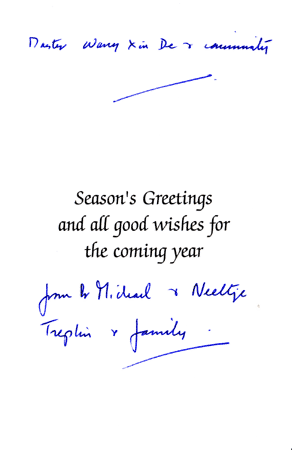 Master Wang Xin De & community
Season's Greetings
and all good wishes for
the coming year
from Dr Michael & Neeltje
Treplin & family.